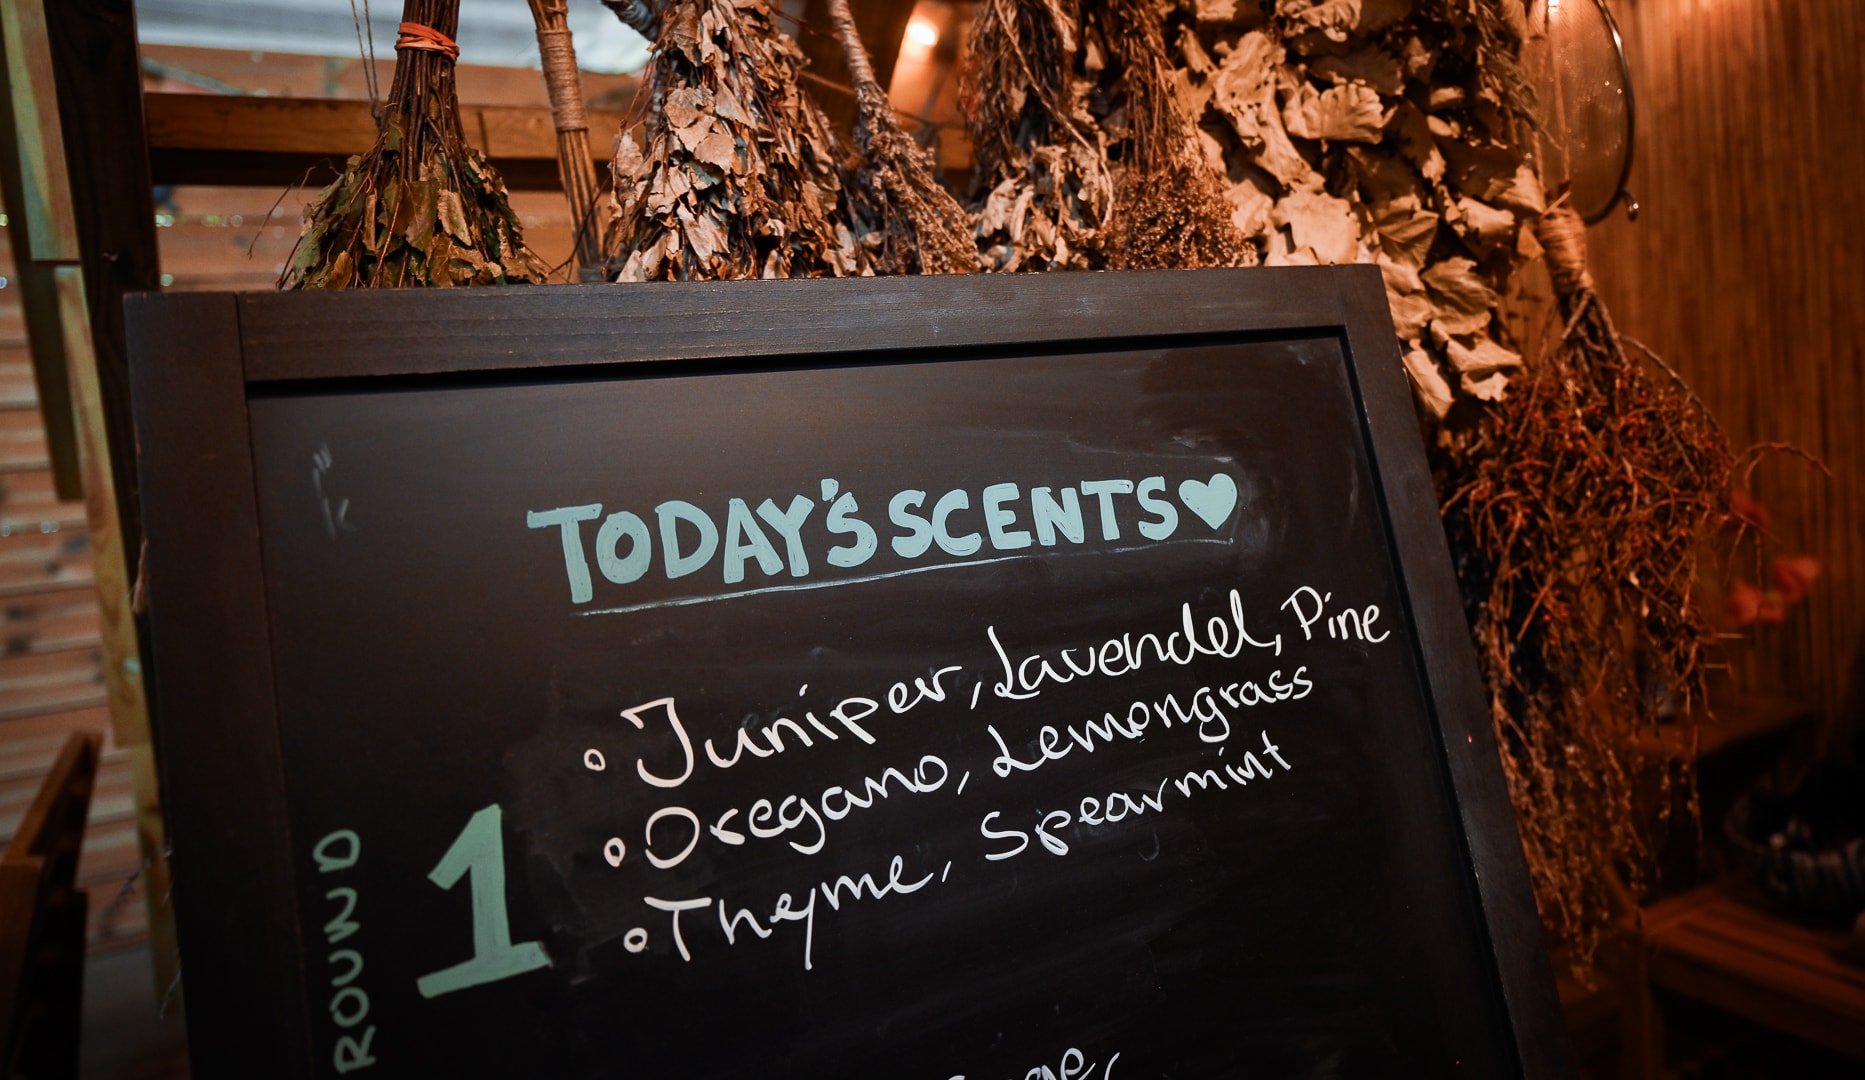 TODAY'S SCENTS♥
◦ Juniper, Lavendel, Pine
◦ Oregano, Lemongrass
◦ Thyme, Spearmint
ROUND
1